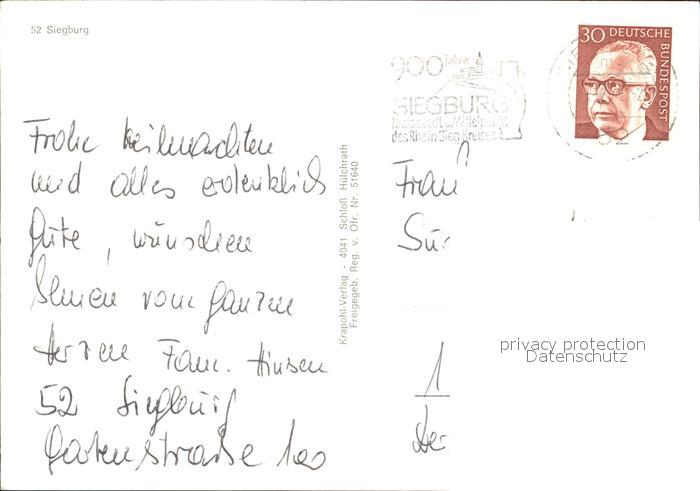 52 Siegburg
900 jahre
SIEGBURG
Kreisstadt u. Mittelpunkt
des Rhein-Sieg-Kreises
30 DEUTSCHE
BUNDESPOST
52
Frohe Weihnachten
und alles erdenklich
Gute, wünschen
Ihnen vom ganzen
Herzen Fam.
52 Siegburg
Gartenstraße 100
Krapohl-Verlag - 4041 Schloß Hülchrath
Freigegeb. Reg. v. Ofr. Nr. 51640
Frau
Su
1
privacy protection
Datenschutz